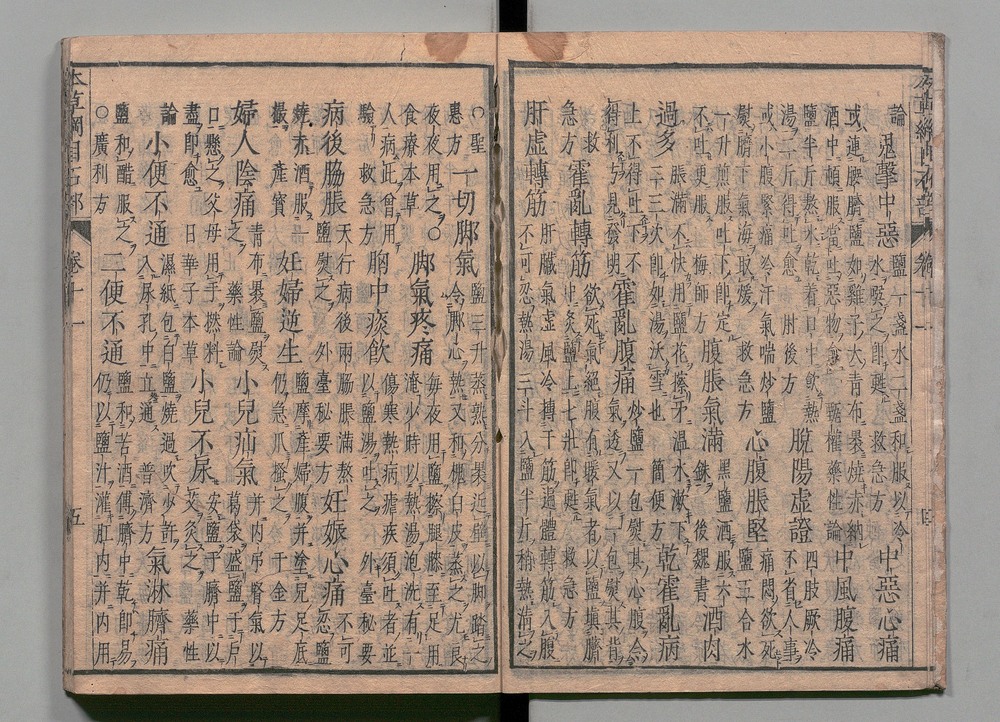 本草綱目石部 卷十一 四
論 鬼擊中惡 鹽一盞水二盞和服以冷水噀之即甦 救急方 中惡心痛
或連腰臍鹽如雞子大青布裹燒赤納酒中頓服當吐惡物愈 甄權藥性論 中風腹痛
鹽半斤熬水乾着口中飲熱湯二斤得吐愈 肘後方 脫陽虛證 四肢厥冷不省人事
或小腹緊痛冷汗氣喘炒鹽熨臍下氣海取煖 救急方 心腹脹堅 痛悶欲死鹽五合水
一升煎服吐下即定不吐更服 梅師方 腹脹氣滿 黑鹽酒服六銖 後魏書 酒肉
過多 脹滿不快用鹽花擦牙溫水漱下二三次即如湯沃雪也 簡便方 乾霍亂病
上不得吐下不得利方見發明 霍亂腹痛 炒鹽一包熨其心腹令氣透又以一包熨其背
救急方 霍亂轉筋 欲死氣絕腹有暖氣者以鹽填臍中灸鹽上七壯即甦 救急方
肝虛轉筋 肝臟氣虛風冷搏于筋遍體轉筋入腹不可忍熱湯三斗入鹽半斤稍熱漬之
○聖惠方 一切脚氣 鹽三升蒸熱分裹近壁以脚踏之令脚心熱又和槐白皮蒸之尤良
夜夜用之○食療本草 脚氣疼痛 每夜用鹽擦腿膝至足甲淹少時以熱湯泡洗有一
人病此曾用驗 救急方 胸中痰飲 傷寒熱病瘧疾須吐者並以鹽湯吐之 外臺秘要
病後脇脹 天行病後兩脇脹滿熬鹽熨之 外臺秘要方 妊娠心痛 不可忍鹽
燒赤酒服一撮 產寶 妊婦逆生 鹽摩產婦腹并塗兒足底仍急爪搔之 千金方
婦人陰痛 青布裹鹽熨之 藥性論 小兒疝氣 并内吊腎氣以葛袋盛鹽于戸
口懸之父母用手撚料盡即愈 日華子本草 小兒不尿 安鹽于臍中以艾灸之 藥性
論 小便不通 濕紙包白鹽燒過吹少許入尿孔中立通 普濟方 氣淋臍痛
鹽和醋服之○廣利方 二便不通 鹽和苦酒傅臍中乾即易仍以鹽汁灌肛内并内用
本草綱目石部 卷十一 五